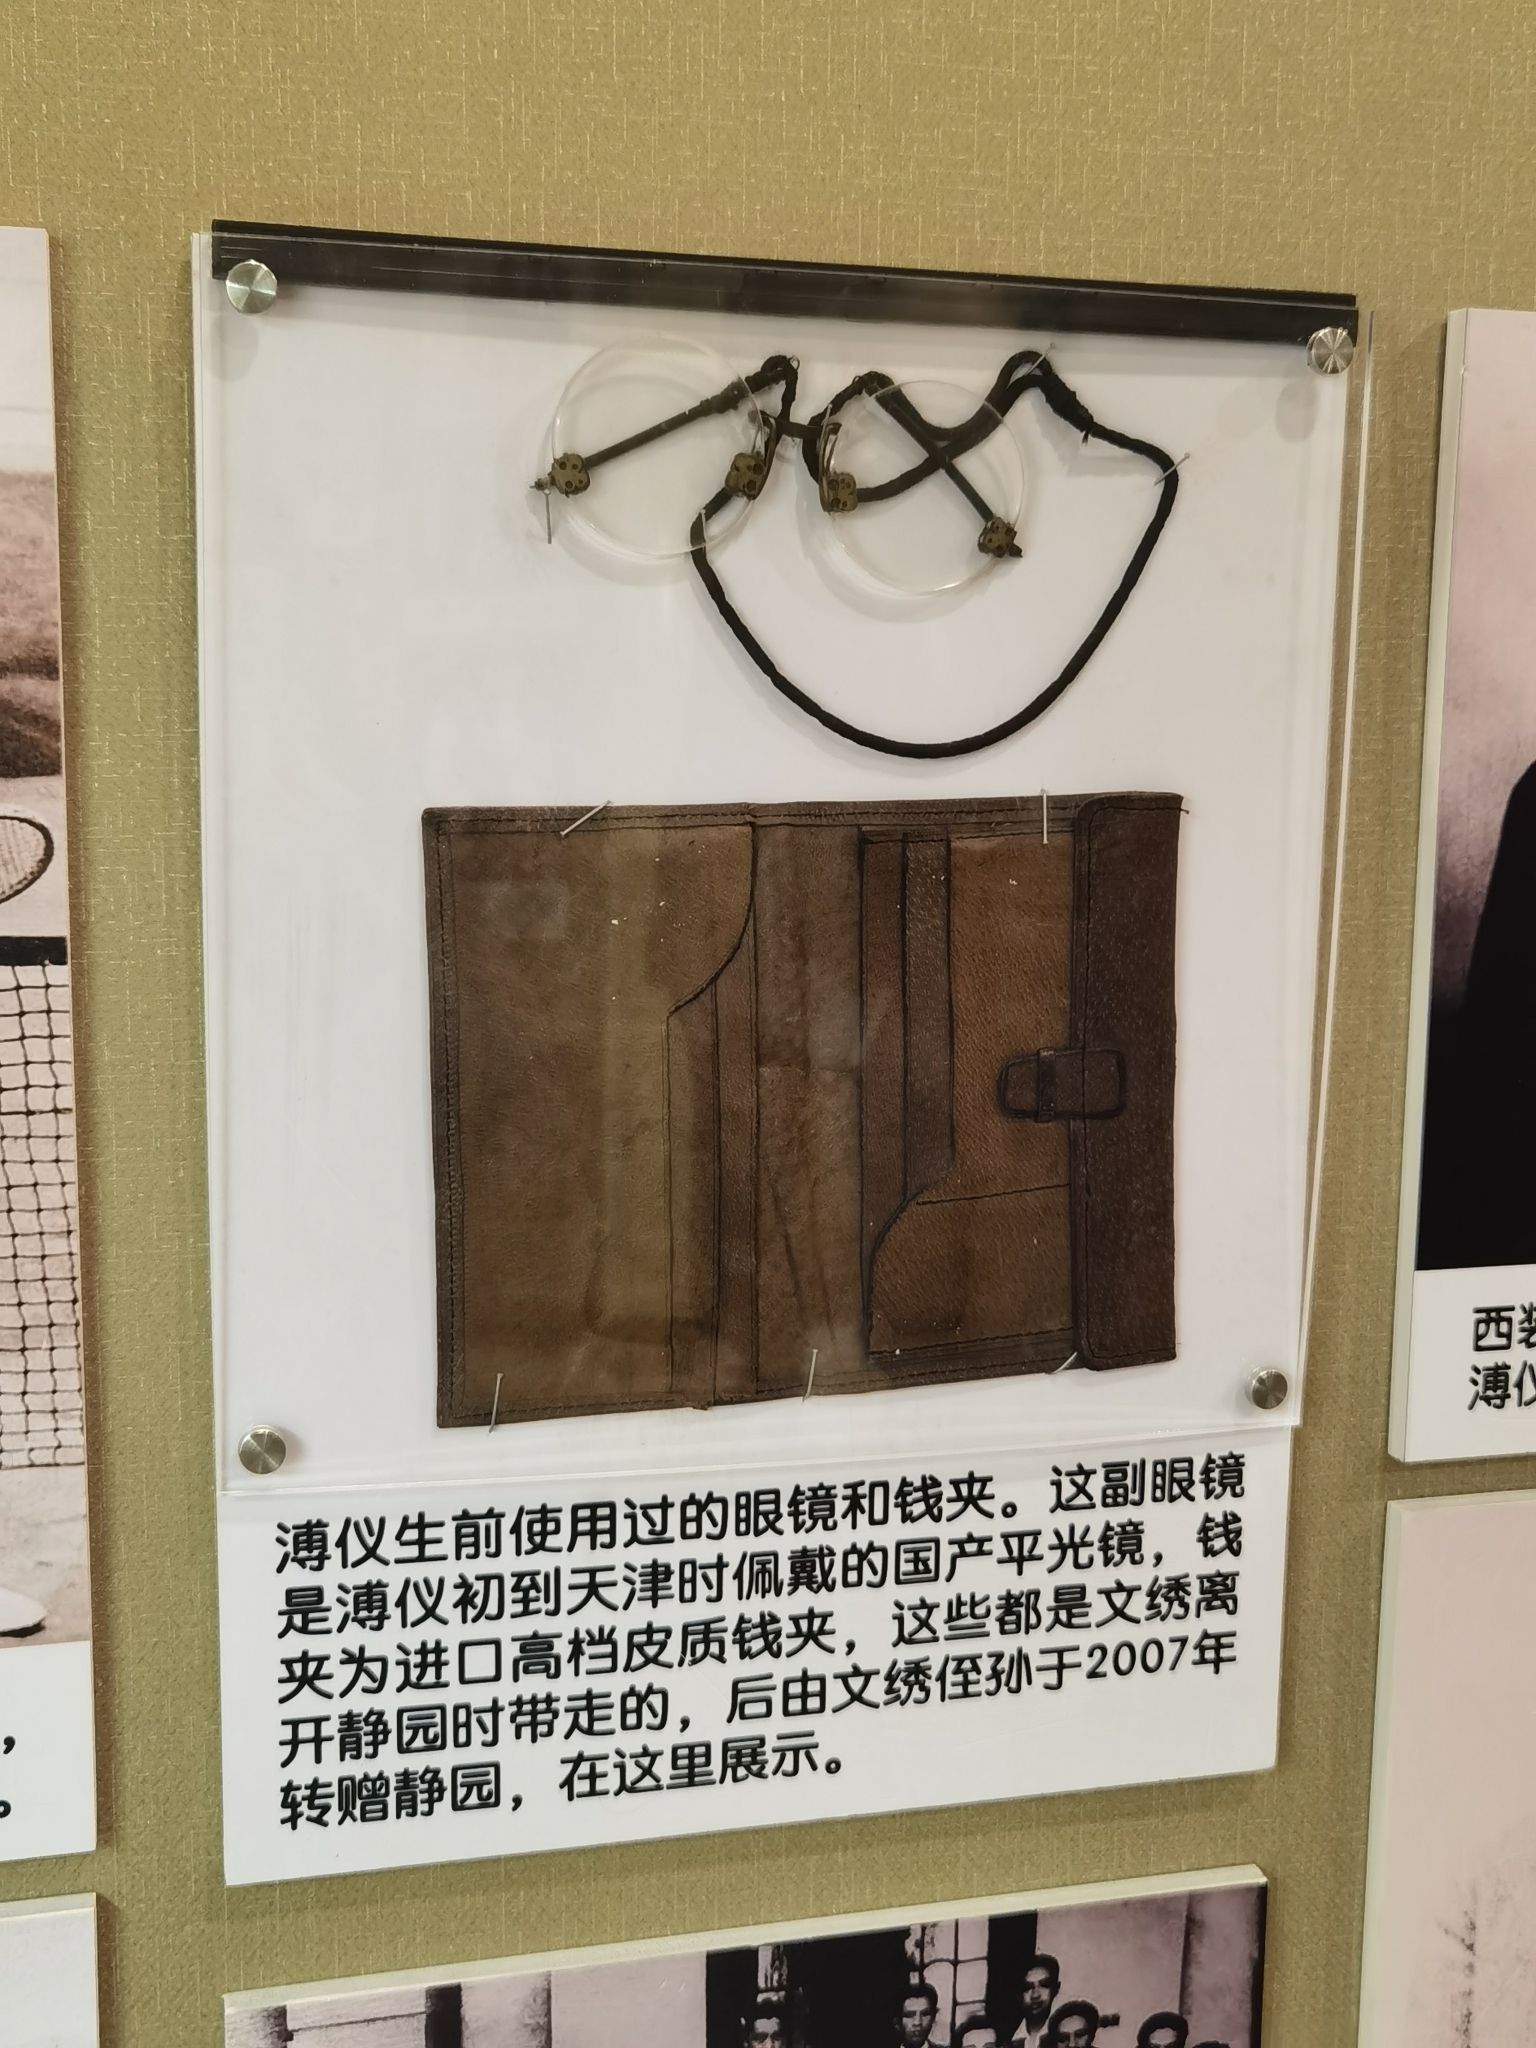 溥仪生前使用过的眼镜和钱夹。这副眼镜
是溥仪初到天津时佩戴的国产平光镜，钱
夹为进口高档皮质钱夹，这些都是文绣离
开静园时带走的，后由文绣侄孙于2007年
转赠静园，在这里展示。
西装
溥仪